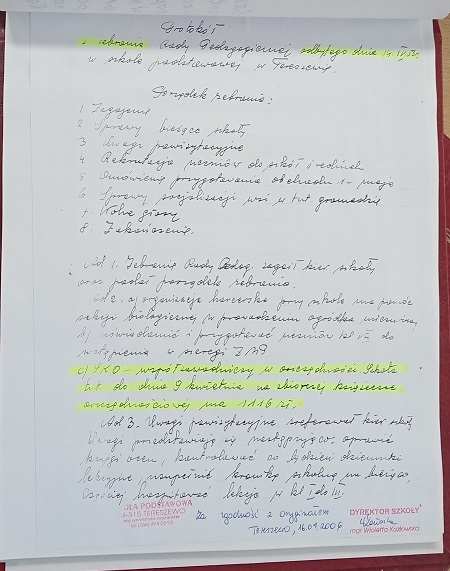 Protokół
z zebrania Rady Pedagogicznej odbytego dnia 14.IV.52r.
w szkole podstawowej w Tereszewie.
Porządek zebrania:
1 Zagajenie
2 Sprawy bieżące szkoły
3 Uwagi powizytacyjne
4 Rekrutacja uczniów do szkół średnich
5 Omówienie przygotowania obchodu 1-maja
6 Sprawy socjalizacji wsi w tut. gromadzie
7 Wolne głosy
8. Zakończenie.
Ad 1. Zebranie Rady Pedag. zagaił kier. szkoły
oraz podał porządek zebrania.
Ad 2. a) organizacja harcerska przy szkole ma pomóc
sekcji biologicznej w prowadzeniu ogródka
b) uświadomić i przygotować uczniów kl VII do
wstąpienia w szeregi ZMP
c) SKO - współzawodniczy w oszczędności. Szkoła
tut. do dnia 9 kwietnia na zbiorczej książeczce
oszczędnościowej ma 1116 zł.
Ad 3. Uwagi powizytacyjne zreferował kier. szkoły
Uwagi przedstawiają się następująco: oprawić
księgi ocen, kontrolować co tydzień dzienniki
lekcyjne, uzupełnić kronikę szkolną na bieżąco,
częściej hospitować lekcje w kl I do III.
Za zgodność z oryginałem
Tereszewo, 16.09.2006
DYREKTOR SZKOŁY
mgr Wioletta Kozłowska
ŁA PODSTAWOWA
3-315 TERESZEWO